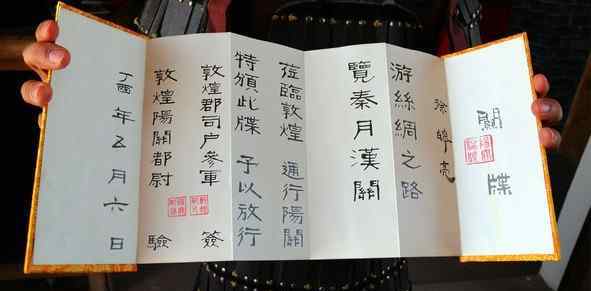 關牒
徐 亮
游絲綢之路
覽秦月漢關
莅臨敦煌 通行陽關
特頒此牒 予以放行
敦煌郡司戶參軍 簽
敦煌陽關都尉 驗
丁酉年五月六日